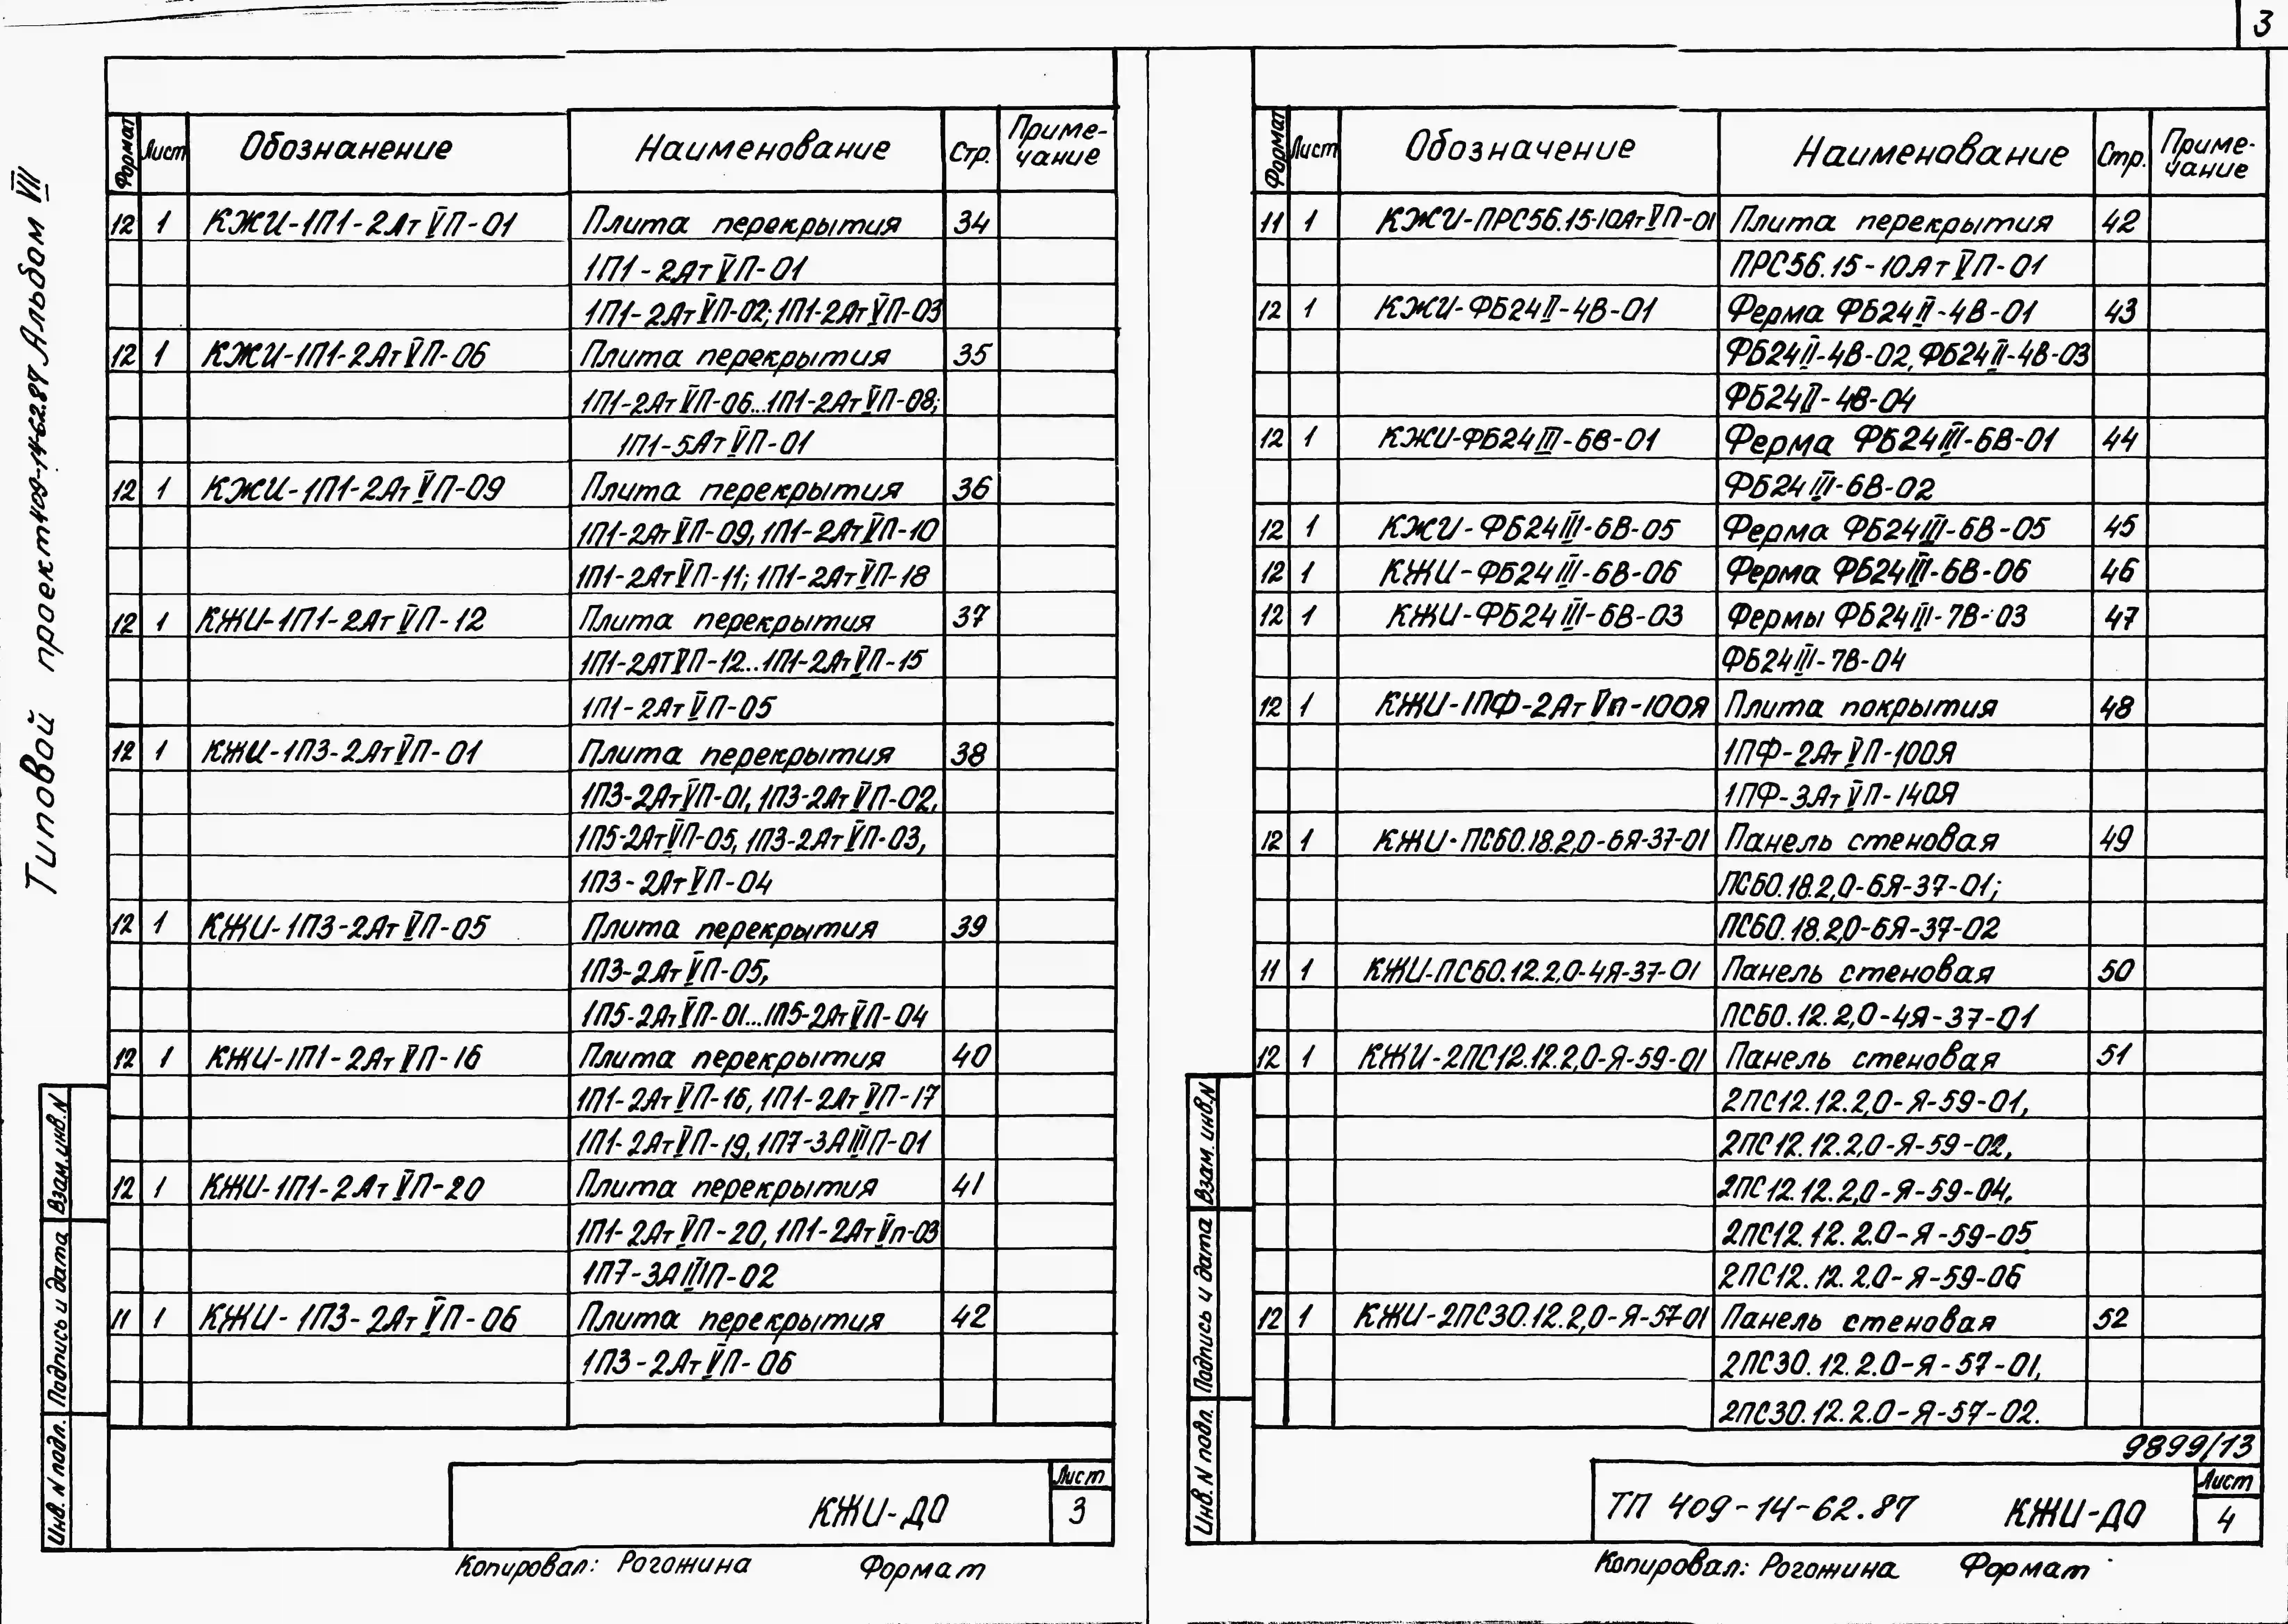 3
Типовой проект 409-14-62.87 Альбом VII
Формат Лист Обозначение Наименование Стр. Приме-
чание
12 1 КЖИ-1П1-2АтVП-01 Плита перекрытия 34
1П1-2АтVП-01
1П1-2АтVП-02; 1П1-2АтVП-03
12 1 КЖИ-1П1-2АтVП-06 Плита перекрытия 35
1П1-2АтVП-06...1П1-2АтVП-08;
1П1-5АтVП-01
12 1 КЖИ-1П1-2АтVП-09 Плита перекрытия 36
1П1-2АтVП-09, 1П1-2АтVП-10
1П1-2АтVП-11; 1П1-2АтVП-18
12 1 КЖИ-1П1-2АтVП-12 Плита перекрытия 37
1П1-2АТVП-12...1П1-2АтVП-15
1П1-2АтVП-05
12 1 КЖИ-1П3-2АтVП-01 Плита перекрытия 38
1П3-2АтVП-01, 1П3-2АтVП-02,
1П5-2АтVП-05, 1П3-2АтVП-03,
1П3-2АтVП-04
12 1 КЖИ-1П3-2АтVП-05 Плита перекрытия 39
1П3-2АтVП-05,
1П5-2АтVП-01...1П5-2АтVП-04
12 1 КЖИ-1П1-2АтVП-16 Плита перекрытия 40
1П1-2АтVП-16, 1П1-2АтVП-17
1П1-2АтVП-19, 1П7-3АIIIП-01
12 1 КЖИ-1П1-2АтVП-20 Плита перекрытия 41
1П1-2АтVП-20, 1П1-2АтVп-03
1П7-3АIIIП-02
11 1 КЖИ-1П3-2АтVП-06 Плита перекрытия 42
1П3-2АтVП-06
Взам.инв.N
Подпись и дата
Инв. N подл.
КЖИ-ДО
Лист
3
Копировал: Рогожина Формат
Формат Лист Обозначение Наименование Стр. Приме-
чание
11 1 КЖИ-ПРС56.15-10АтVП-01 Плита перекрытия 42
ПРС56.15-10АтVП-01
12 1 КЖИ-ФБ24II-4В-01 Ферма ФБ24II-4В-01 43
ФБ24II-4В-02, ФБ24II-4В-03
ФБ24II-4В-04
12 1 КЖИ-ФБ24III-6В-01 Ферма ФБ24III-6В-01 44
ФБ24III-6В-02
12 1 КЖИ-ФБ24III-6В-05 Ферма ФБ24III-6В-05 45
12 1 КЖИ-ФБ24III-6В-06 Ферма ФБ24III-6В-06 46
12 1 КЖИ-ФБ24III-6В-03 Фермы ФБ24III-7В-03 47
ФБ24III-7В-04
12 1 КЖИ-1ПФ-2АтVп-100Я Плита покрытия 48
1ПФ-2АтVП-100Я
1ПФ-3АтVП-140Я
12 1 КЖИ-ПС60.18.2,0-6Я-37-01 Панель стеновая 49
ПС60.18.2,0-6Я-37-01;
ПС60.18.2,0-6Я-37-02
11 1 КЖИ-ПС60.12.2,0-4Я-37-01 Панель стеновая 50
ПС60.12.2,0-4Я-37-01
12 1 КЖИ-2ПС12.12.2,0-Я-59-01 Панель стеновая 51
2ПС12.12.2,0-Я-59-01,
2ПС12.12.2,0-Я-59-02,
2ПС12.12.2,0-Я-59-04,
2ПС12.12.2.0-Я-59-05
2ПС12.12.2,0-Я-59-06
12 1 КЖИ-2ПС30.12.2,0-Я-57-01 Панель стеновая 52
2ПС30.12.2.0-Я-57-01,
2ПС30.12.2.0-Я-57-02.
9899/13
Взам. инв.N
Подпись и дата
Инв. N подл.
ТП 409-14-62.87 КЖИ-ДО
Лист
4
Копировал: Рогожина Формат